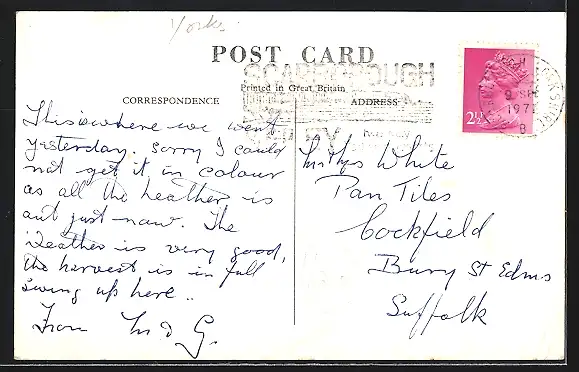 Yorks.
POST CARD
SCARBOROUGH
Printed in Great Britain
CORRESPONDENCE
ADDRESS
2½
This is where we went
yesterday. Sorry I could
not get it in colour
as all the heather is
out just now. The
weather is very good,
the harvest is in full
swing up here..
From M & G.
White
Pan Tiles
Cockfield
Bury St Edms
Suffolk